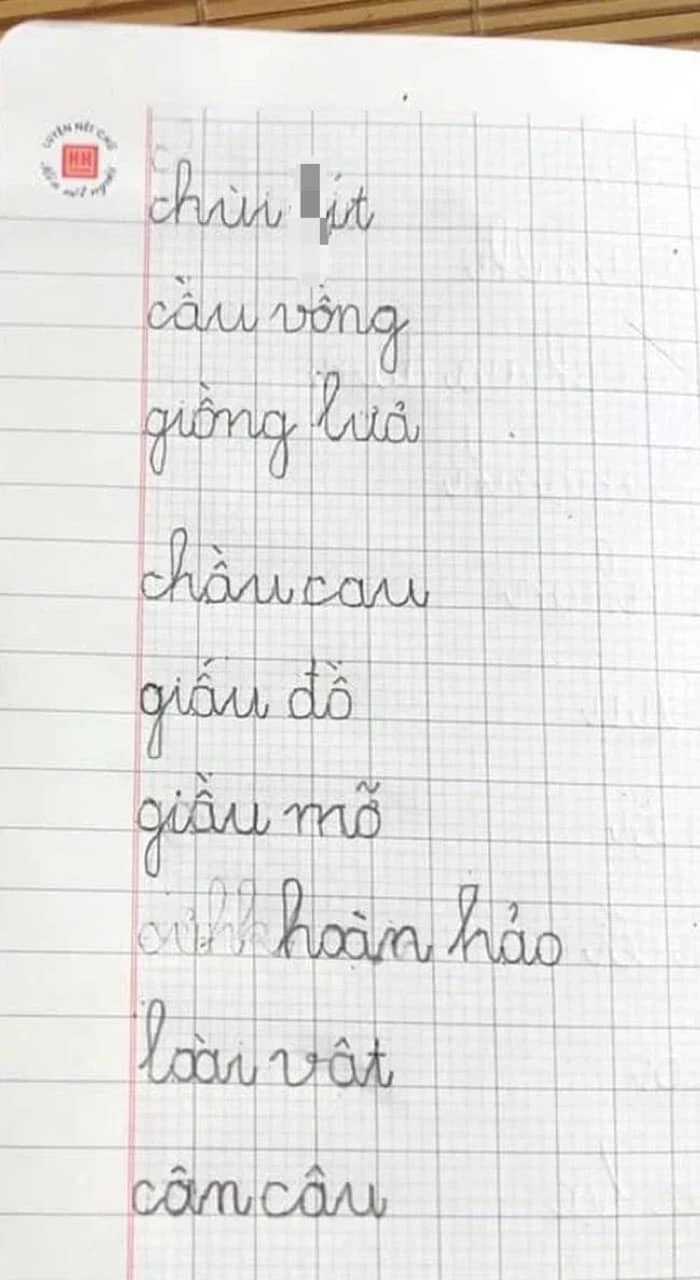 LUYỆN NÉT CHỮ
HH
chùi ịt
cầu vồng
giồng lưả
chầu cau
giấu đồ
giầu mỡ
hoàn hảo
loài vật
cân câu